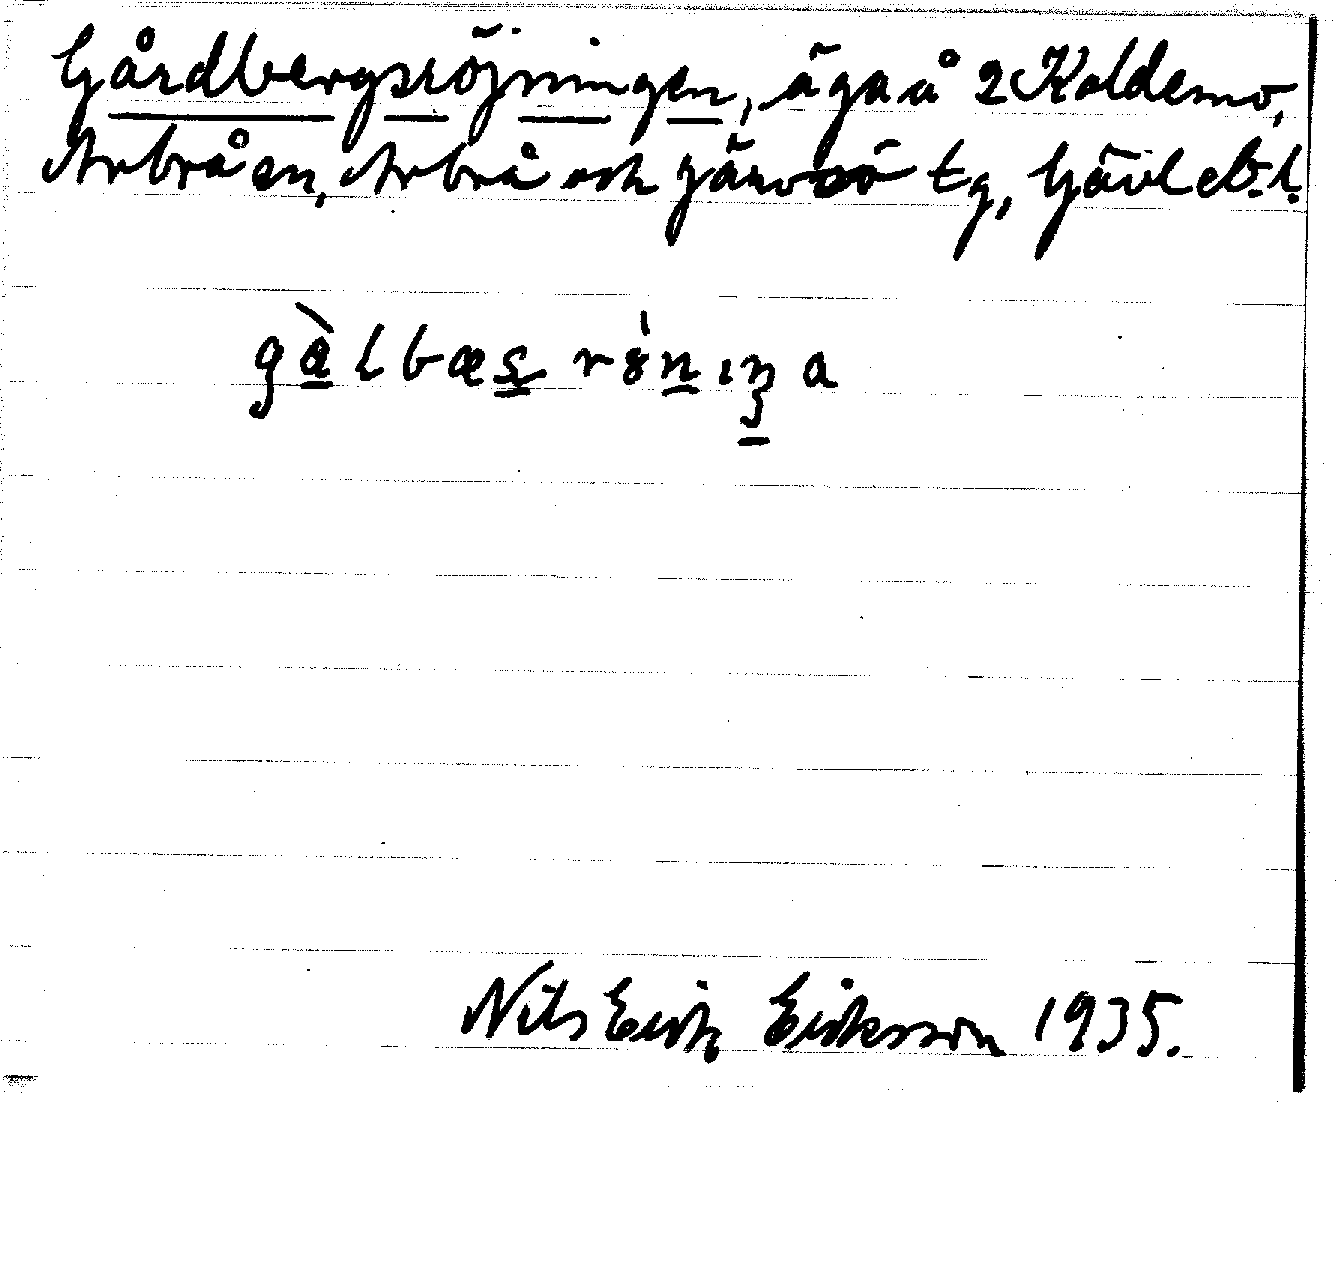 Gårdbergsröjningen, äga å 2 Koldemo,
Arbrå sn, Arbrå och Järvsö tg, Gävleb. l.
gàlbæs rönıŋa
Nils Erik Eriksson 1935.